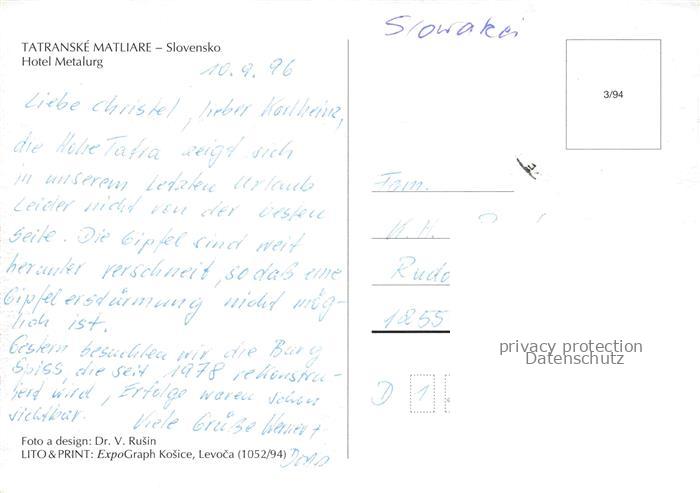 TATRANSKÉ MATLIARE – Slovensko
Hotel Metalurg
10.9.96
Liebe Christel, lieber Karlheinz,
die Hohe Tatra zeigt sich
in unserem letzten Urlaub
leider nicht von der besten
Seite. Die Gipfel sind weit
herunter verschneit, so daß eine
Gipfelerstürmung nicht mög-
lich ist.
Gestern besuchten wir die Burg
Spiss, die seit 1978 rekonstru-
iert wird, Erfolge waren schon
sichtbar. Viele Grüße Werner +
Doris
Foto a design: Dr. V. Rušin
LITO & PRINT: ExpoGraph Košice, Levoča (1052/94)
Slowakei
3/94
Fam.
K. H.
Rudo
1855
privacy protection
Datenschutz
D 1